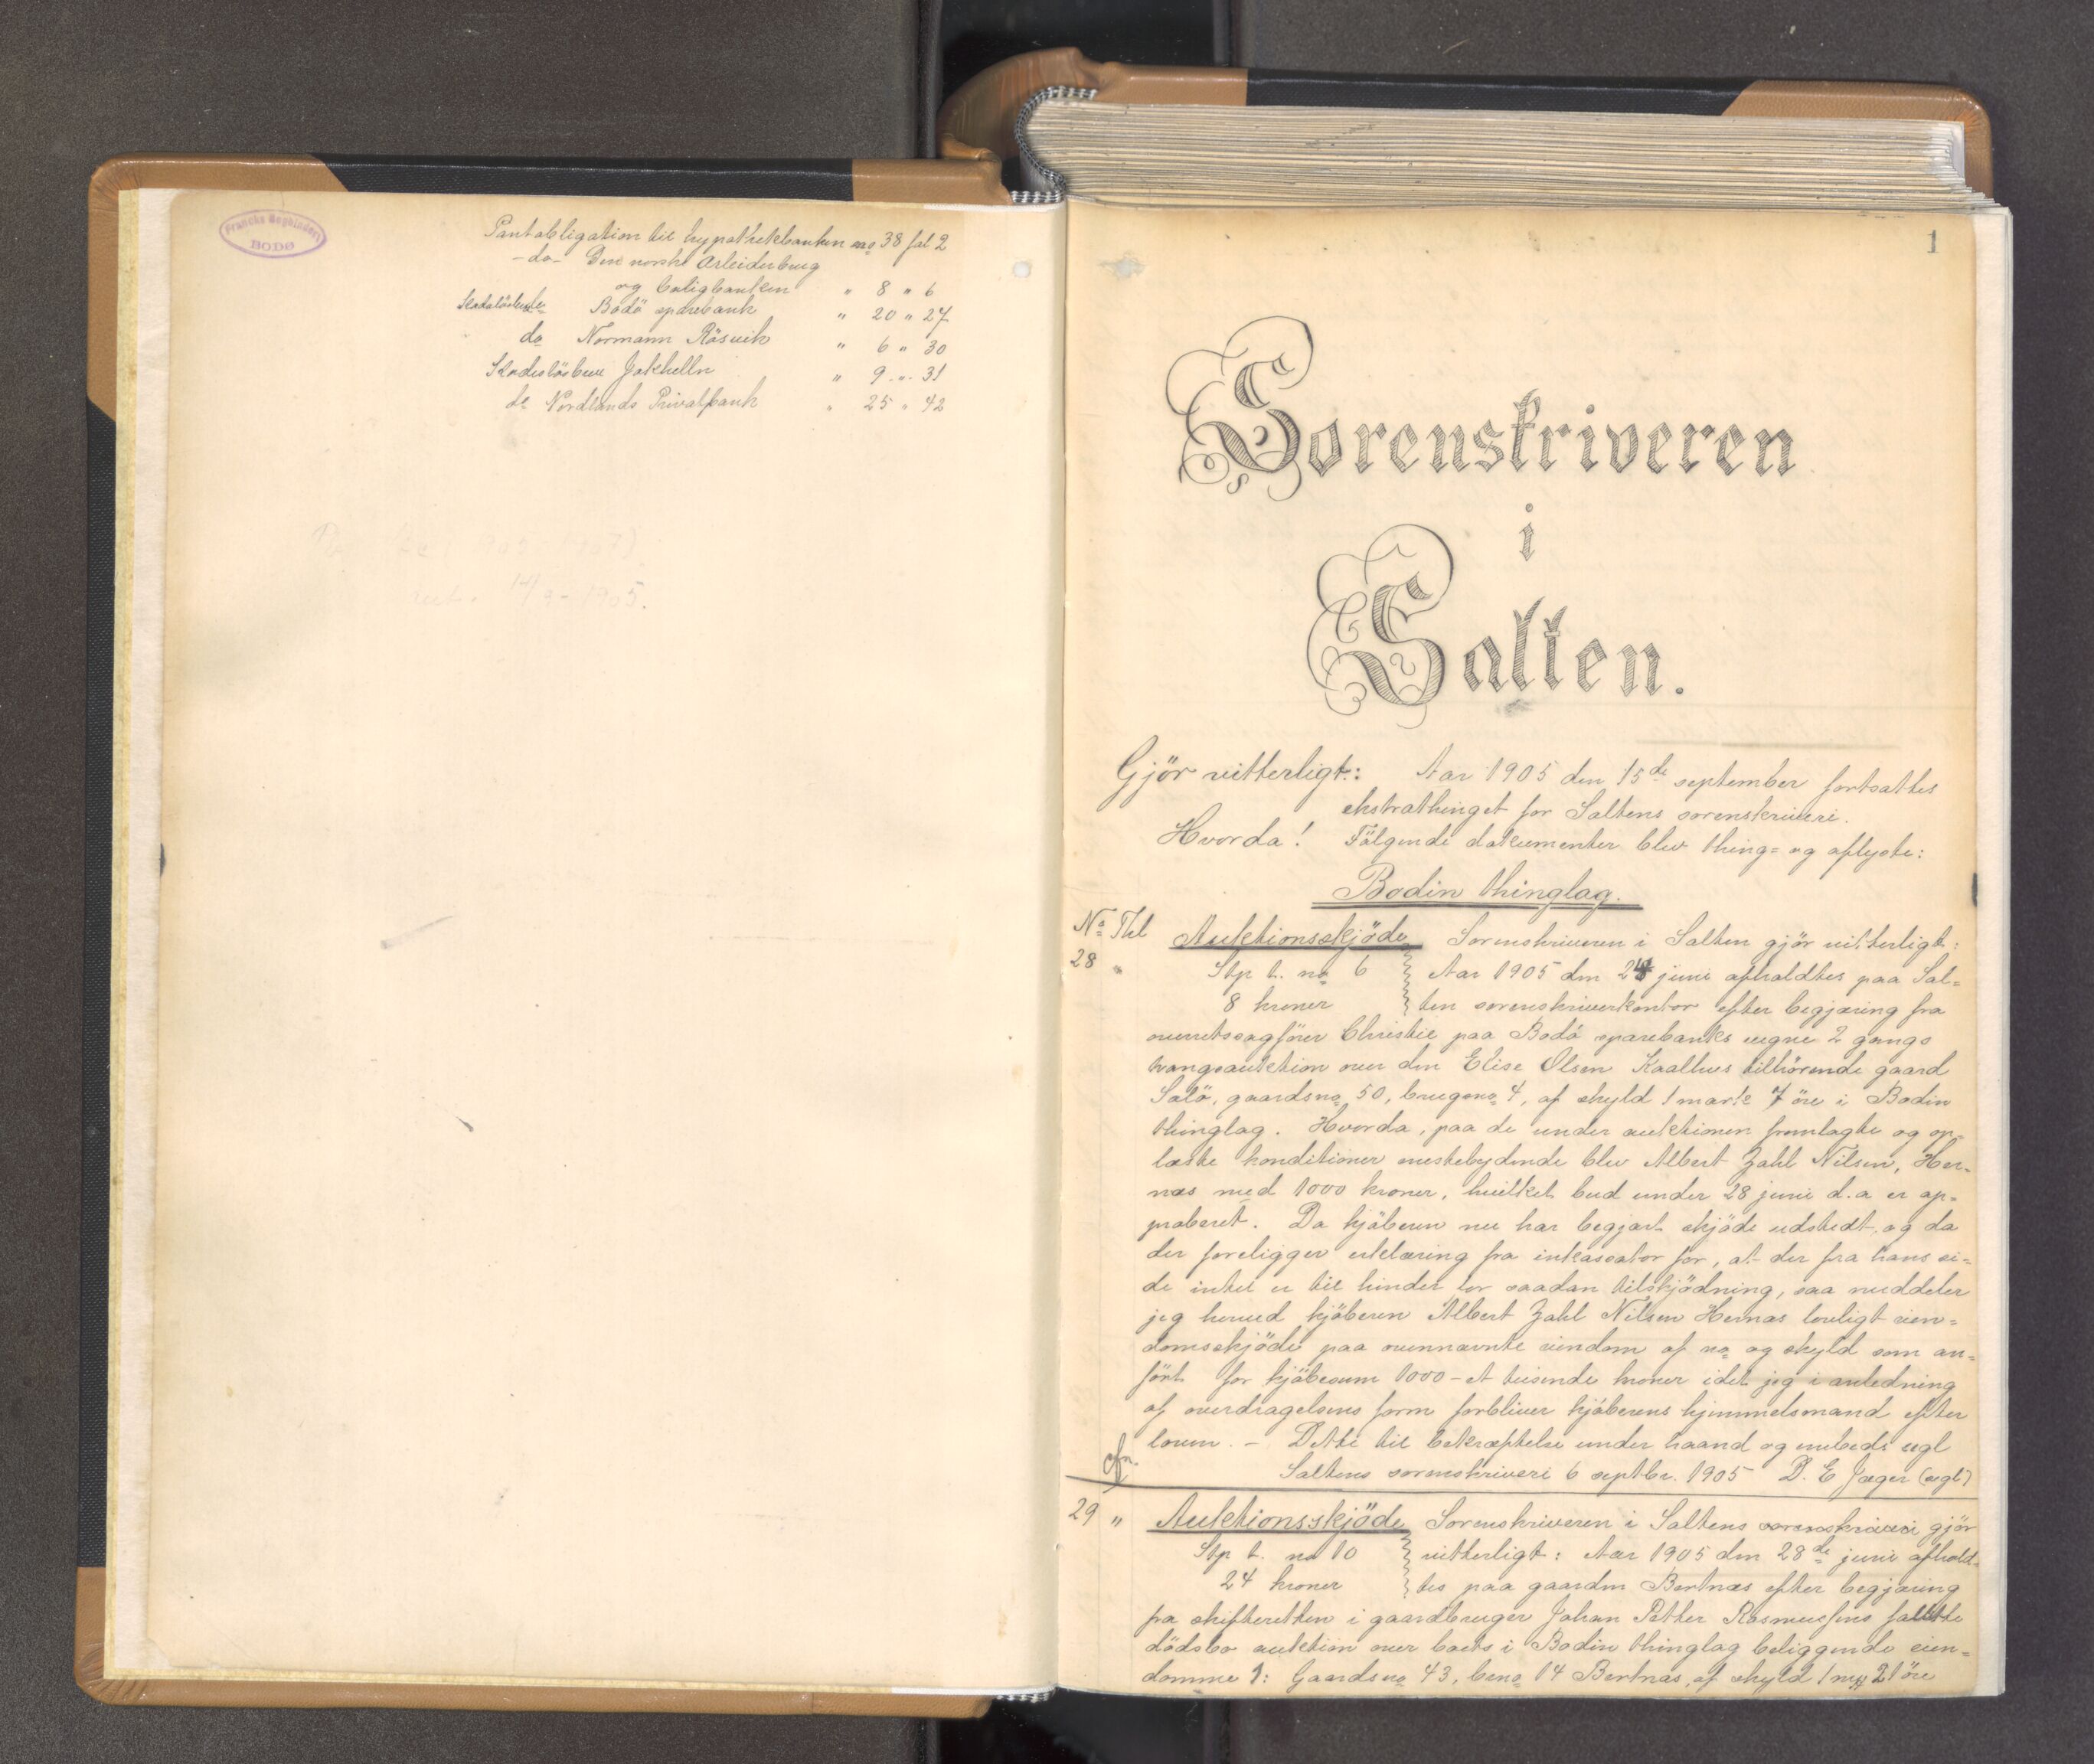 Francks Bogbinderi
BODØ
Pantobligation til hypothekbanken no 38 fol 2
-do- Den norske Arbeiderbrug
og boligbanken " 8 " 6
Skadesløsbrev Bodö sparebank " 20 " 27
do Normann Rösvik " 6 " 30
Skadeslösbrev Jakhelln " 9 " 31
do Nordlands Privatbank " 25 " 42
14/9-1905.
1
Sorenskriveren
i
Salten.
Gjör vitterligt: Aar 1905 den 15de september fortsattes
ekstrathinget for Saltens sorenskriveri.
Hvorda! Fölgende dokumenter blev thing= og aflyste:
Bodin thinglag.
No Thl Auktionsskjöde Sorenskriveren i Salten gjör vitterligt:
28 " Stp t. no 6 Aar 1905 den 24 juni afholdtes paa Sal=
8 kroner ten sorenskriverkontor efter begjæring fra
overretssagförer Christie paa Bodö sparebanks vegne 2 gangs
tvangsauktion over den Elise Olsen Kaalhus tilhörende gaard
Salö, gaardsno 50, brugsno 4, af skyld 1 mark 7 öre i Bodin
thinglag. Hvorda, paa de under auktionen fremlagte og op=
læste konditioner mestbydende blev Albert Zahl Nilsen, Her=
næs med 1000 kroner, hvilket bud under 28 juni d.a er ap=
proberet. Da kjöberen nu har begjært skjöde udstedt, og da
der foreligger erklæring fra inkassator for, at der fra hans si=
de intet er til hinder for saadan tilskjödning, saa meddeler
jeg herved kjöberen Albert Zahl Nilsen Hernæs lovligt eien=
domsskjöde paa ovennævnte eiendom af no og skyld som an=
fört for kjöbesum 1000 - et tusende kroner idet jeg i anledning
af overdragelsens form forbliver kjöberens hjemmelsmand efter
loven. - Dette til bekræftelse under haand og embeds segl
Saltens sorenskriveri 6 septbr. 1905 D. E Jæger (segl)
29 " Auktionsskjöde Sorenskriveren i Saltens sorenskriveri gjör
Stp t. no 10 vitterligt: Aar 1905 den 28de juni afhold=
24 kroner tes paa gaarden Bertnæs efter begjæring
fra skifteretten i gaardbruger Johan Petter Rasmussens fallitte
dödsbo auktion over boets i Bodin thinglag beliggende eien=
domme 1: Gaardsno 43, bno 14 Bertnæs, af skyld 1 mk 21 öre